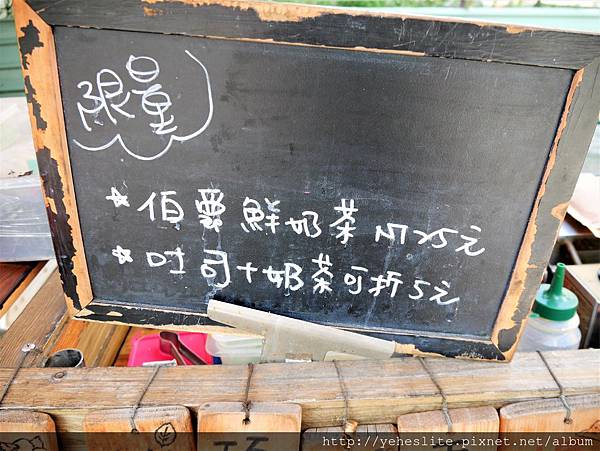 限量
☆伯爵鮮奶茶 M 25元
☆吐司+奶茶可折5元
http://yeheslite.pixnet.net/album